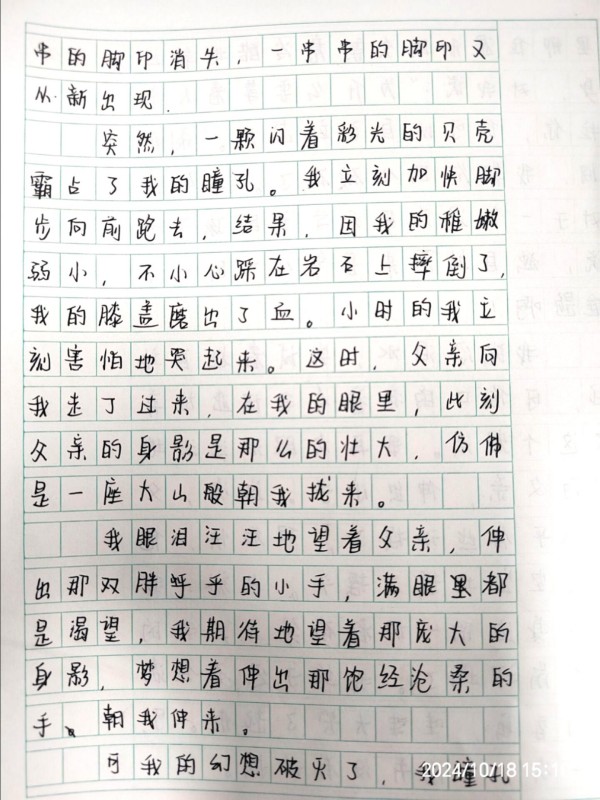 串的脚印消失，一串串的脚印又
从新出现.
突然，一颗闪着彩光的贝壳
霸占了我的瞳孔。我立刻加快脚
步向前跑去，结果，因我的稚嫩
弱小，不小心踩在岩石上摔倒了，
我的膝盖磨出了血。小时的我立
刻害怕地哭起来。这时，父亲向
我走了过来，在我的眼里，此刻
父亲的身影是那么的壮大，仿佛
是一座大山般朝我拢来。
我眼泪汪汪地望着父亲，伸
出那双胖乎乎的小手，满眼里都
是渴望，我期待地望着那庞大的
身影，梦想着伸出那饱经沧桑的
手、朝我伸来。
可我的幻想破灭了，我瞳孔
2024/10/18 15:10